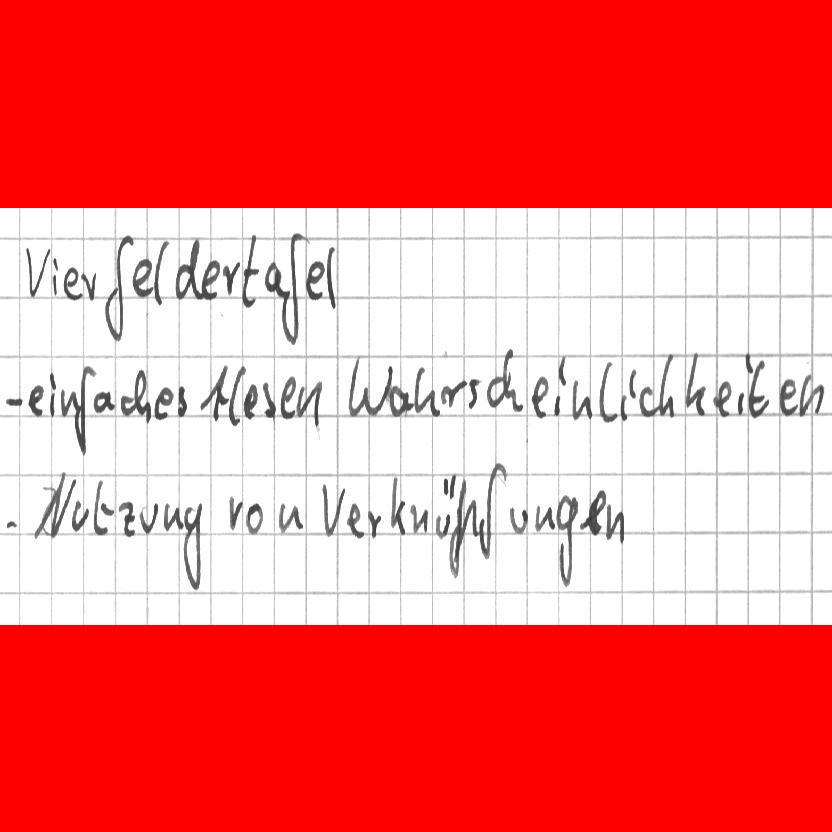 Vierfeldertafel
- einfaches Wahrscheinlichkeiten
- Nutzung von Verknüpfungen